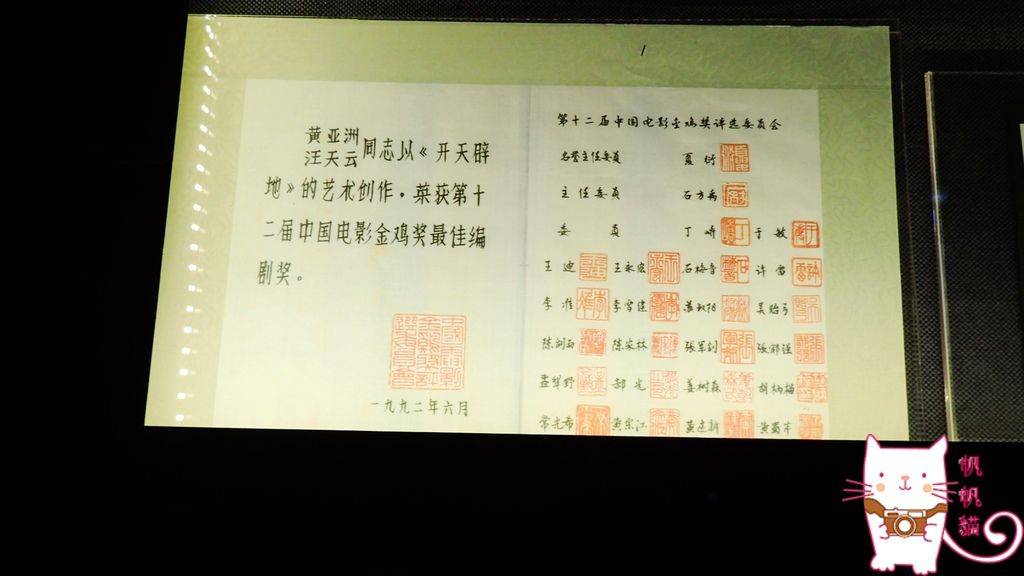 黄亚洲
汪天云 同志以《开天辟
地》的艺术创作，荣获第十
二届中国电影金鸡奖最佳编
剧奖。
一九九二年六月
第十二届中国电影金鸡奖评选委员会
名誉主任委员 夏衍
主任委员 石方禹
委员 丁峤 于敏
王迪 王永宏 石梅音 许雷
李准 李雪健 苏叔阳 吴贻弓
陈剑雨 陈家林 张军钊
孟犁野 郝光 姜树森 胡柄榴
常光希 黄宗江 黄建新 黄蜀芹
帆帆貓